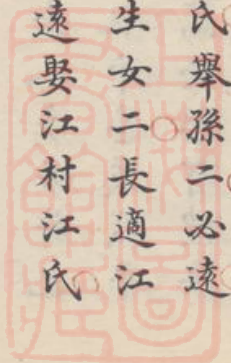 氏舉孫二必遠
生女二長適江
遠娶江村江氏